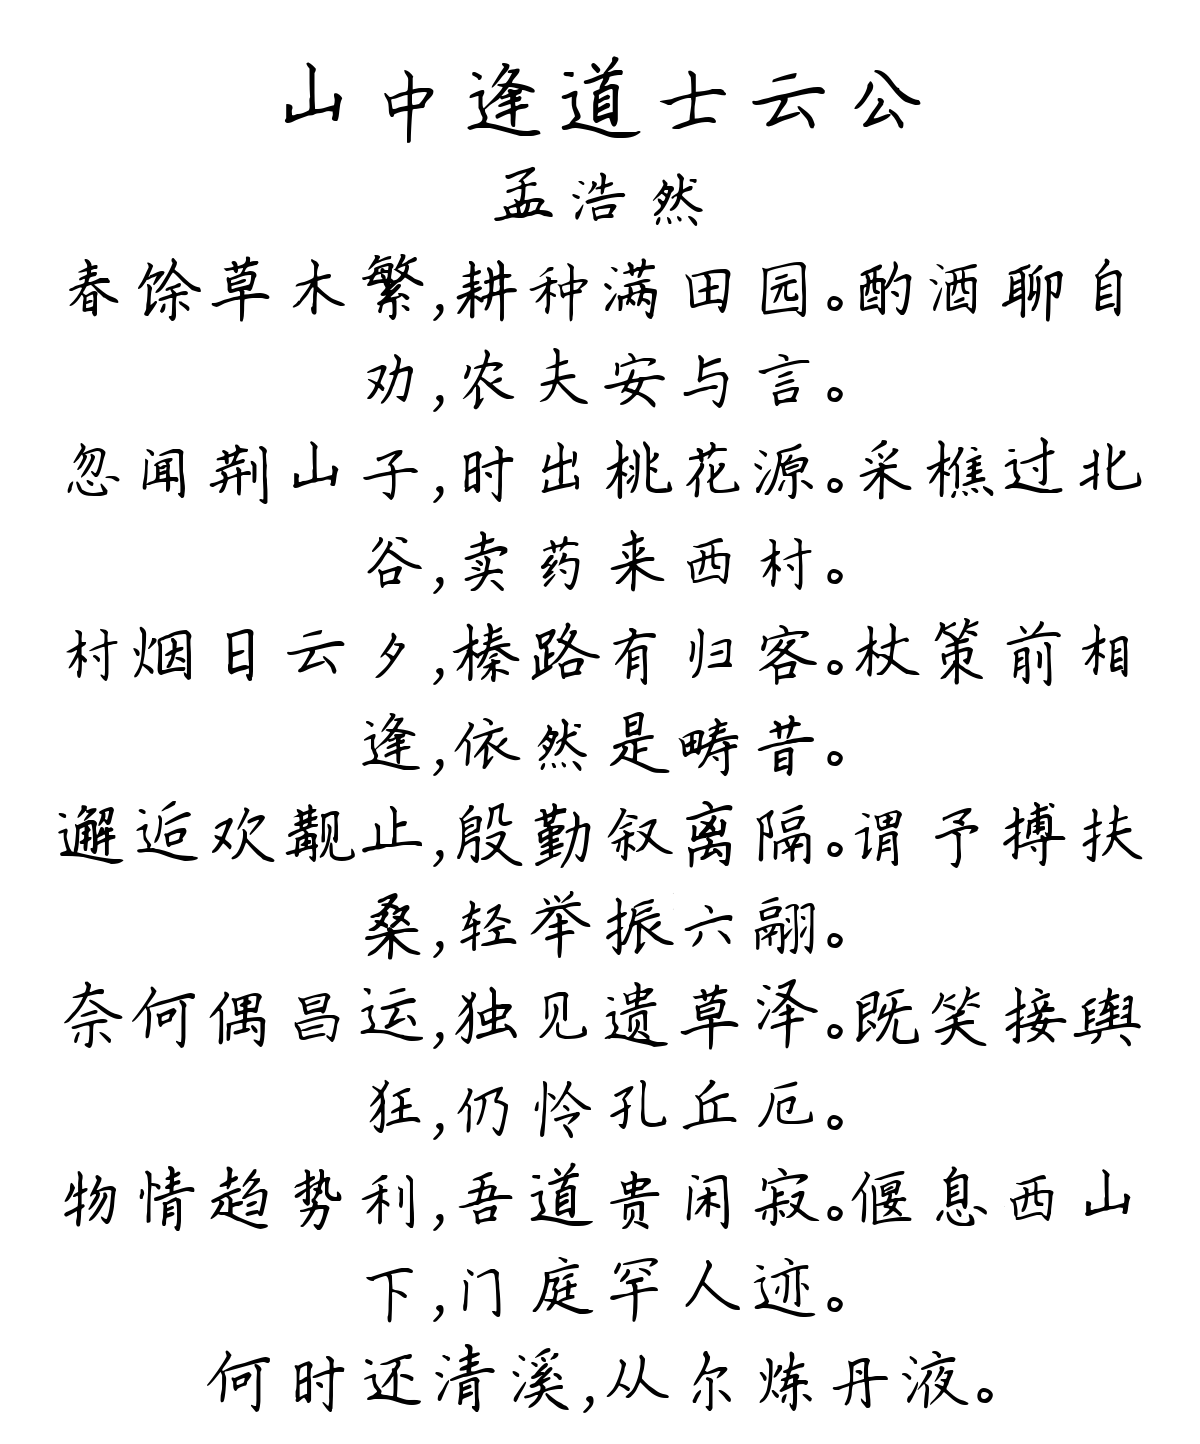 山中逢道士云公
孟浩然
春馀草木繁,耕种满田园。酌酒聊自
劝,农夫安与言。
忽闻荆山子,时出桃花源。采樵过北
谷,卖药来西村。
村烟日云夕,榛路有归客。杖策前相
逢,依然是畴昔。
邂逅欢觏止,殷勤叙离隔。谓予搏扶
桑,轻举振六翮。
奈何偶昌运,独见遗草泽。既笑接舆
狂,仍怜孔丘厄。
物情趋势利,吾道贵闲寂。偃息西山
下,门庭罕人迹。
何时还清溪,从尔炼丹液。